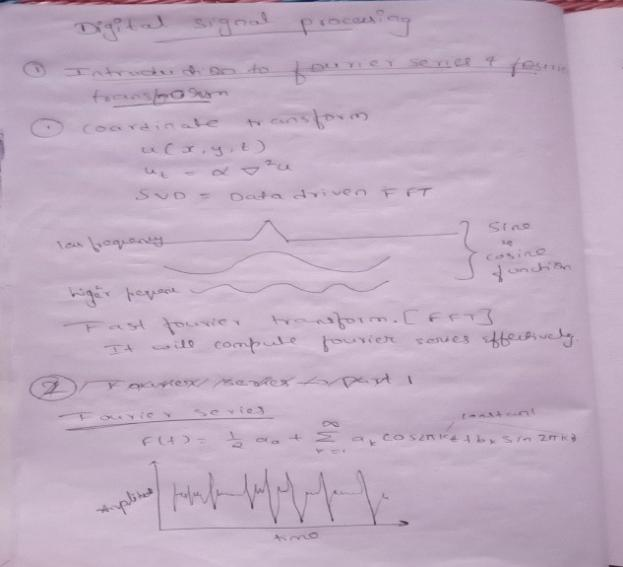 Digital signal processing
① Introduction to fourier series & fourier
transform
① Coordinate transform
u(x,y,t)
u_t = α ∇²u
SVD = Data driven FFT
low frequency
Sine
cosine
function
higer
Fast fourier transform. [FFT]
It will compute fourier series effectively.
② Fourier series -> part 1
Fourier series
constant
F(t) = 1/2 a₀ + ∞ Σ a_k cos2πkt + b_k sin2πkt
Amplitude
time